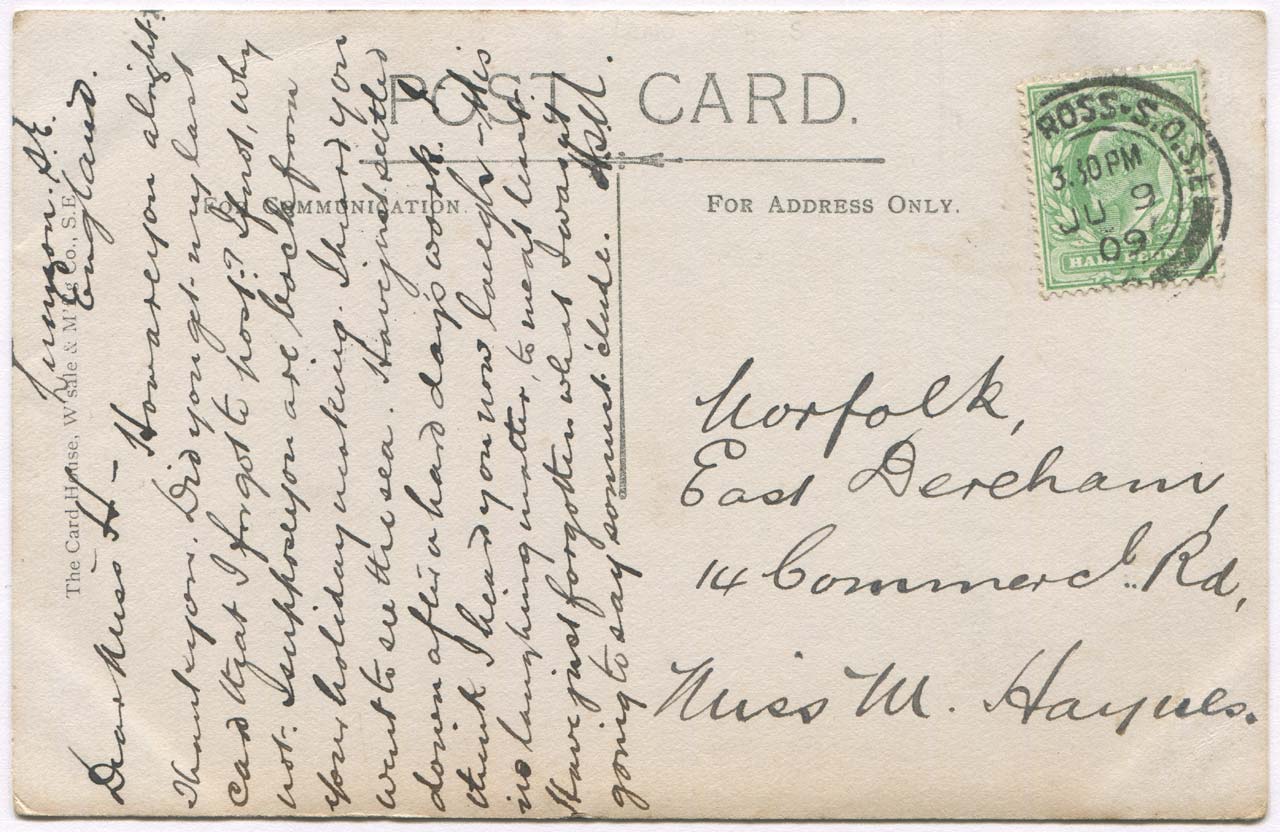 POST CARD.
FOR COMMUNICATION.
FOR ADDRESS ONLY.
The Card House, W'sale & M'f'g Co., S.E.
ROSS-S.O.S.E
3.30PM
JU 9
09
HALFPENNY
S.E.
England.
Dear Miss H-
How are you alright.
Thank you. Did you get my last
card that I forgot to post? If not, why
not. I suppose you are back from
your holiday making. I heard you
went to see the sea. Have just settled
down after a hard day's work. I
think I heard you now laugh - this
is no laughing matter, to me at least.
Have just forgotten what I was
going to say so must 'clude.
Norfolk,
East Dereham,
14 Commercl. Rd,
Miss M. Haynes.